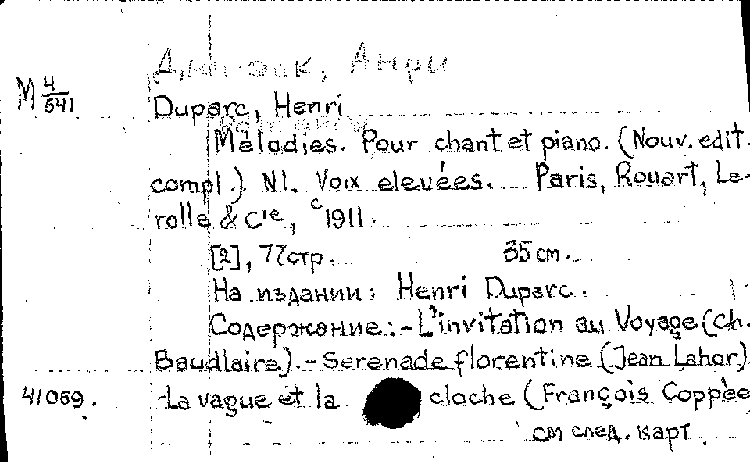 Дюпарк, Анри
М 4/641
Duparc, Henri
Mélodies. Pour chant et piano. (Nouv. edit.
compl.) N1. Voix elevées. Paris, Rouart, Le-
rolle & Cie, c1911.
[2], 77стр. 35 см.
На издании: Henri Duparc.
Содержание: - L'invitation au Voyage (Ch.
Baudlaire). - Serenade florentine (Jean Lahor)
41059. -La vague et la cloche (François Coppée
см след. карт.